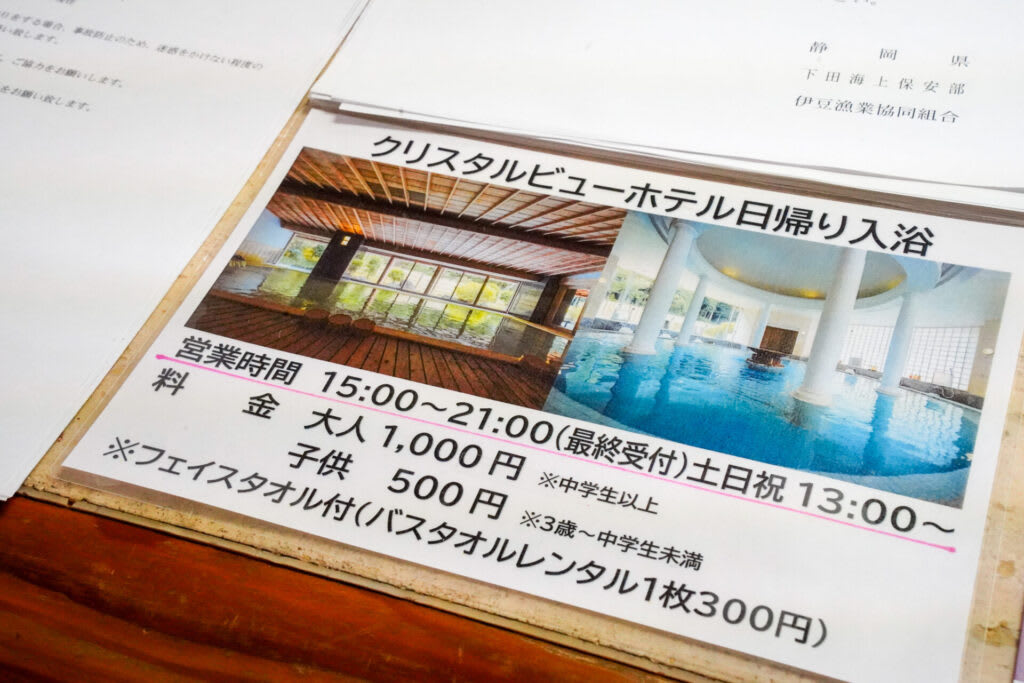 りをする場合、事故防止のため、迷惑をかけない程度の
い致します。
、ご協力をお願いします。
をお願い致します。
静岡県
下田海上保安部
伊豆漁業協同組合
クリスタルビューホテル日帰り入浴
営業時間 15:00～21:00(最終受付)土日祝 13:00～
料金 大人 1,000 円 ※中学生以上
子供 500 円 ※3歳～中学生未満
※フェイスタオル付(バスタオルレンタル1枚300円)